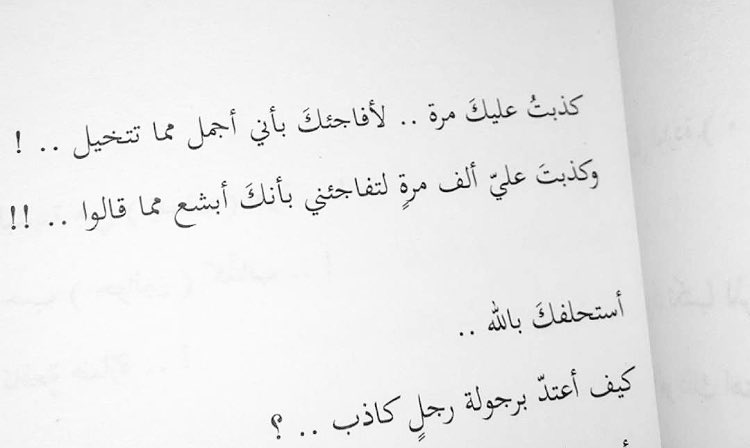 كذبتُ عليكَ مرة .. لأفاجئكَ بأني أجمل مما تتخيل .. !
وكذبتَ عليّ ألف مرةٍ لتفاجئني بأنكَ أبشع مما قالوا .. !!
أستحلفكَ بالله ..
كيف أعتدّ برجولة رجلٍ كاذب .. ؟